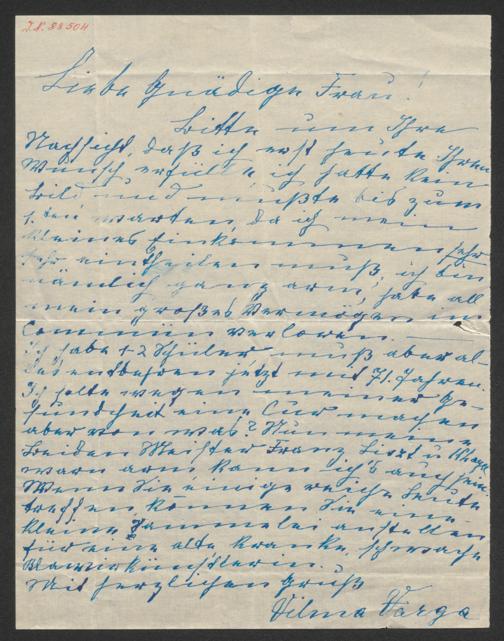 I.N. 88504
Liebe Gnädige Frau!
Bitte um Ihre
Nachsicht, daß ich erst heute Ihren
Wunsch erfülle ich hatte kein
Bild und mußte bis zum
1. ten warten, da ich mein
kleines Einkommen sehr
sehr eintheilen muß, ich bin
nämlich ganz arm, habe all
mein großes Vermögen im
verloren.
Ich habe 1-2 Schüler muß aber al-
les entbehren jetzt mit 71. Jahren.
Ich sollte wegen meiner Ge-
sundheit eine Cur machen
aber von was? Nun meine
beiden Meister Franz Liszt u.
warn arm kann ich's auch sein.
Wenn Sie einige reiche Leute
treffen, können Sie eine
kleine Sammelei anstellen
für eine alte kranke, schwache
Klavierkünstlerin.
Mit herzlichen Gruß
Vilma Varga